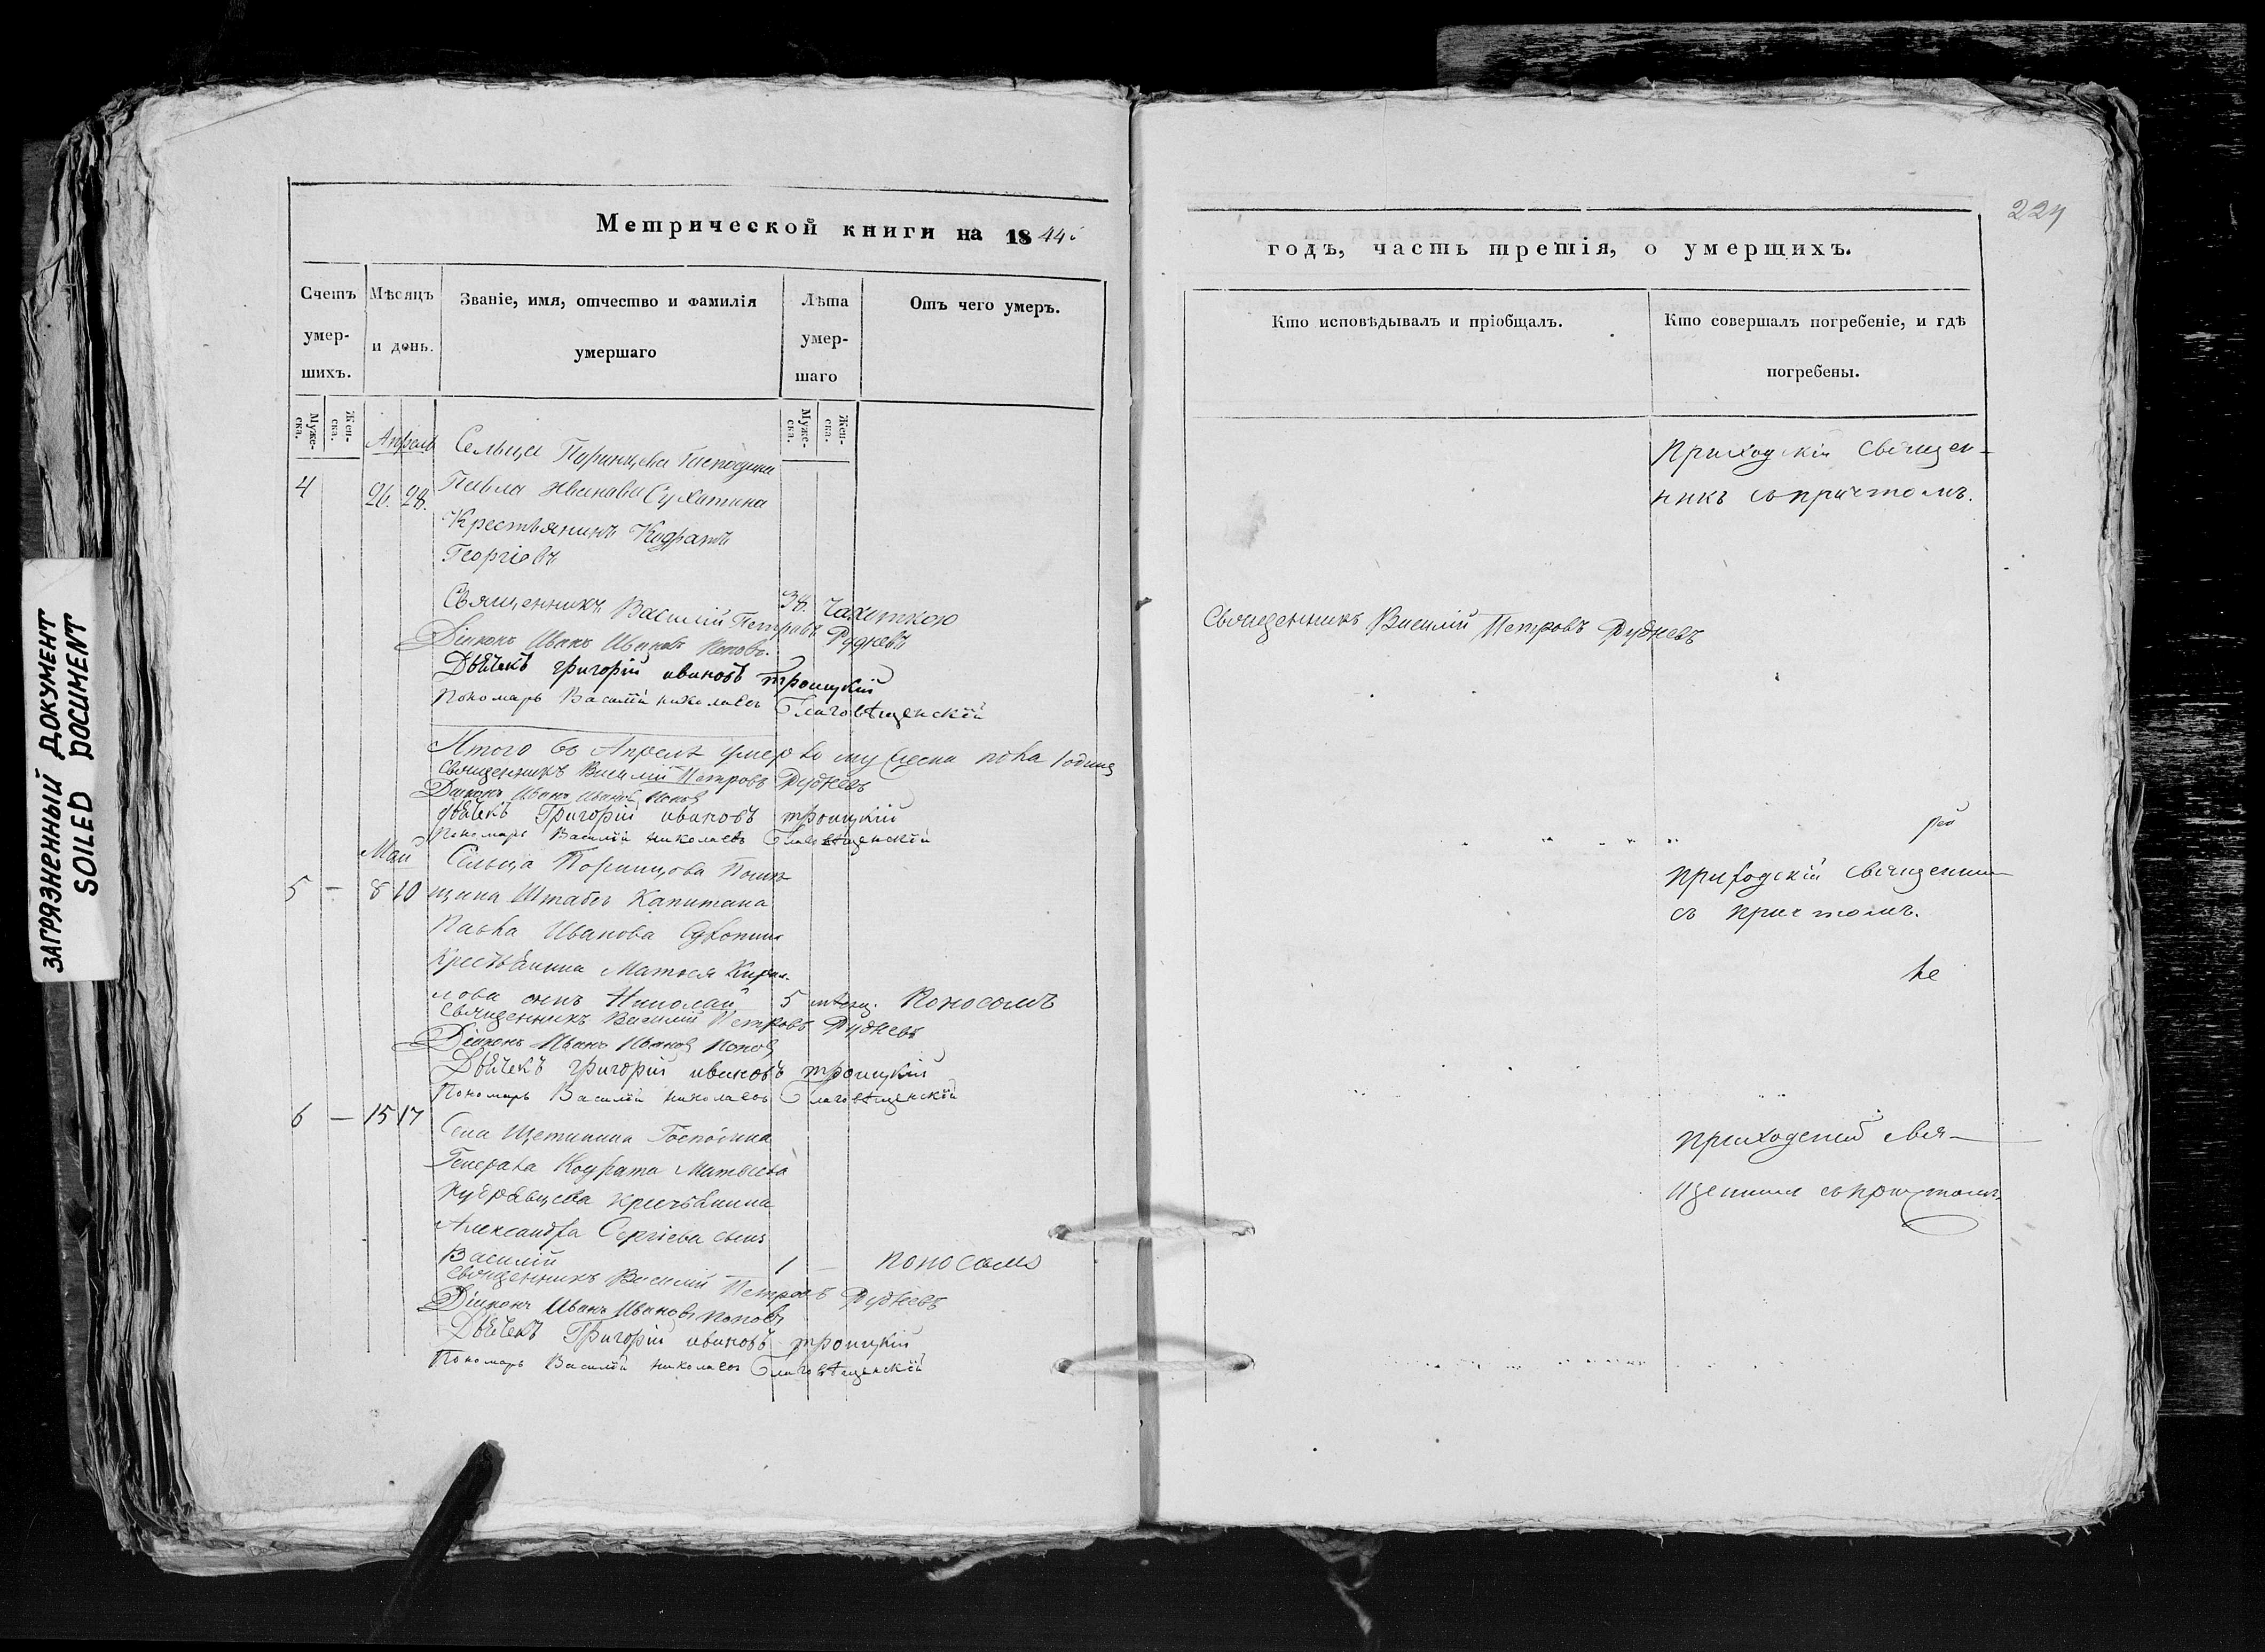 ЗАГРЯЗНЕННЫЙ ДОКУМЕНТ
SOILED DOCUMENT
Метрической книги на 1844й
Счетъ умер-шихъ.
Мѣсяцъ и день.
Званіе, имя, отчество и фамилія умершаго
Лѣта умер-шаго
Отъ чего умеръ.
Муже-ска.
Жен-ска.
Муже-ска.
Жен-ска.
Апрель
Сельца Господина
4 26. 28. Павла Иванова Сухотина
Крестьянинъ Кодратъ
Георгіевъ
38. Чахоткою
Священникъ Василій Петровъ Рудневъ
Діаконъ Иванъ Ивановъ Поповъ.
Дьячекъ григорій ивановъ троицкій
Пономарь Василій николаевъ Благовѣщенскій
Итого въ Апрелѣ умерло мужеска пола 1 одинъ
Священникъ Василій Петровъ Рудневъ
Діаконъ Иванъ Ивановъ Поповъ
дьячекъ Григорій ивановъ троицкій
Пономарь Василій николаевъ Благовѣщенскій
Май
Сельца
5 – 8 10 Штабсъ Капитана
Павла Иванова Сухотина
Матвея Кирил-
лова сынъ Николай 5 Поносомъ
Священникъ Василій Петровъ Рудневъ
Діаконъ Иванъ Ивановъ Поповъ
Дьячекъ григорій ивановъ троицкій
Пономарь Василій николаевъ Благовѣщенскій
6 – 15 17
Села Щетинина Господина
Генерала Кодрата Матвеева
Александра Сергіева сынъ
Василій 1 – поносомъ
Священникъ Василій Петровъ Рудневъ
Діаконъ Иванъ Ивановъ Поповъ
Дьячекъ Григорій ивановъ троицкій
Пономарь Василій николаевъ Благовѣщенскій
годъ, часть третія, о умерщихъ.
Кто исповѣдывалъ и пріобщалъ.
Кто совершалъ погребеніе, и гдѣ погребены.
Приходскій священ-
никъ съ причтомъ.
Священникъ Василій Петровъ Рудневъ
приходскій священникъ
съ причтомъ.
приходскій свя-
щенникъ съ причтомъ